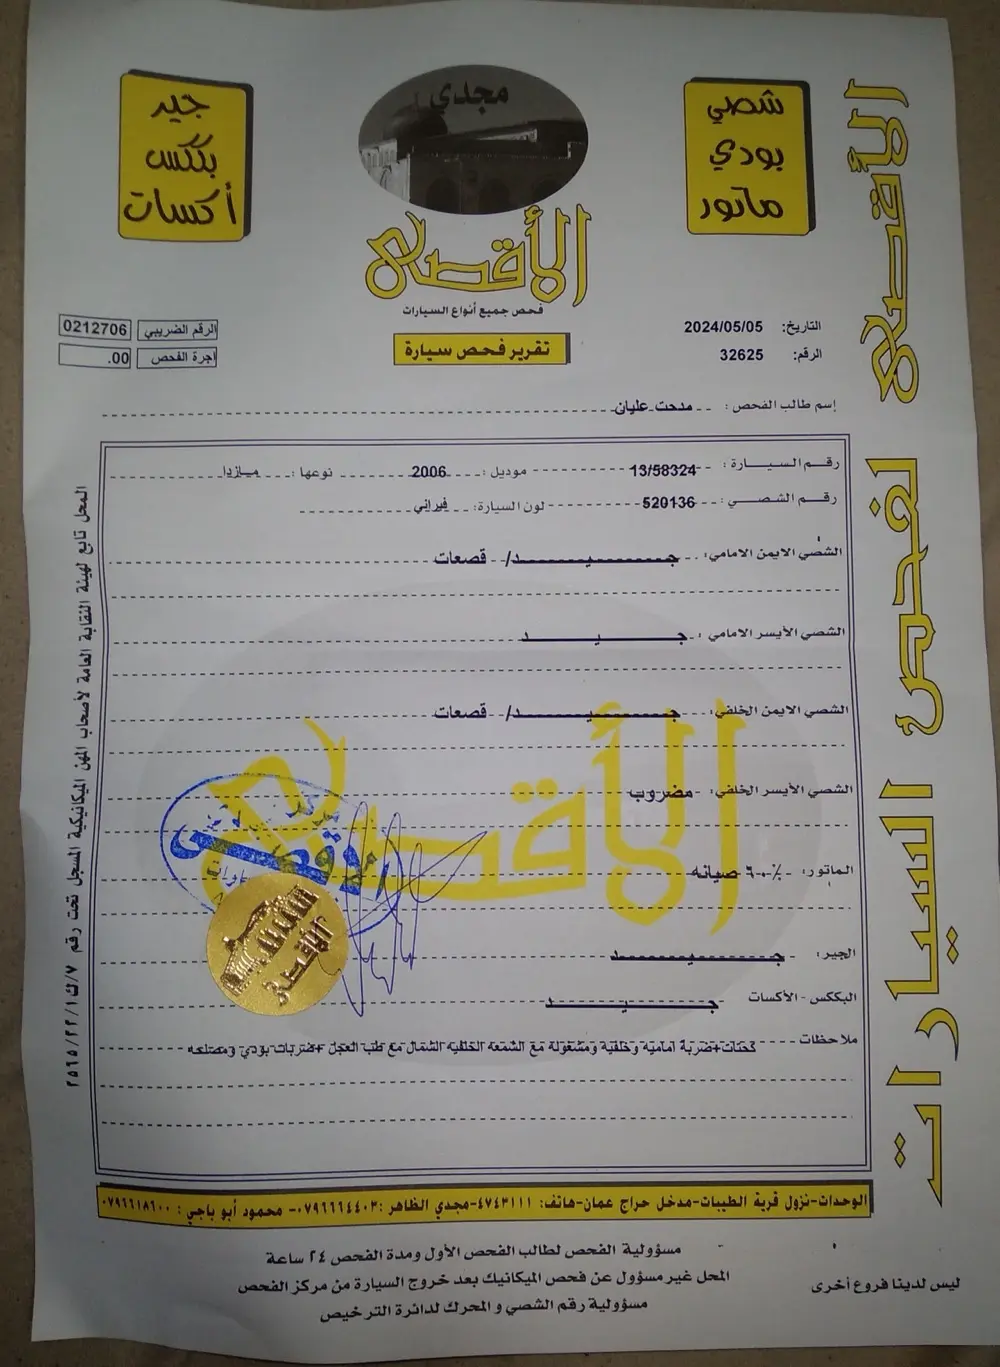 شصي
بودي
ماتور
مجدي
الأقصى
فحص جميع أنواع السيارات
جير
بككس
أكسات
الأقصى لفحص السيارات
التاريخ: 2024/05/05
الرقم: 32625
تقرير فحص سيارة
الرقم الضريبي 0212706
اجرة الفحص 00.
إسم طالب الفحص : مدحت عليان
رقم السيارة : 13/58324 موديل : 2006 نوعها : مازدا
رقم الشصي : 520136 لون السيارة: فيراني
الشصي الايمن الامامي: جيد/ قصعات
الشصي الأيسر الامامي : جيد
الشصي الايمن الخلفي: جيد/ قصعات
الشصي الأيسر الخلفي: مضروب
الماتور: ٦٠٪ صيانه
الجير: جيد
البككس - الأكسات جيد
ملاحظات كتات+ضربة امامية وخلفية ومشغولة مع الشمعة الخلفية الشمال مع طب العجل +ضربات بودي ومصلحه
الأقصى
المحل تابع لهيئة النقابة العامة لأصحاب المهن الميكانيكية المسجل تحت رقم ٧/ك/٢٢/١/٢٥٦٥
الوحدات-نزول قرية الطيبات-مدخل حراج عمان-هاتف: ٤٧٤٣١١١-مجدي الظاهر :٠٧٩٦٦٦٤٤٠٣- محمود أبو باجي : ٠٧٩٦٦١٨٦٠٠
مسؤولية الفحص لطالب الفحص الأول ومدة الفحص ٢٤ ساعة
المحل غير مسؤول عن فحص الميكانيك بعد خروج السيارة من مركز الفحص
مسؤولية رقم الشصي و المحرك لدائرة الترخيص
ليس لدينا فروع أخرى